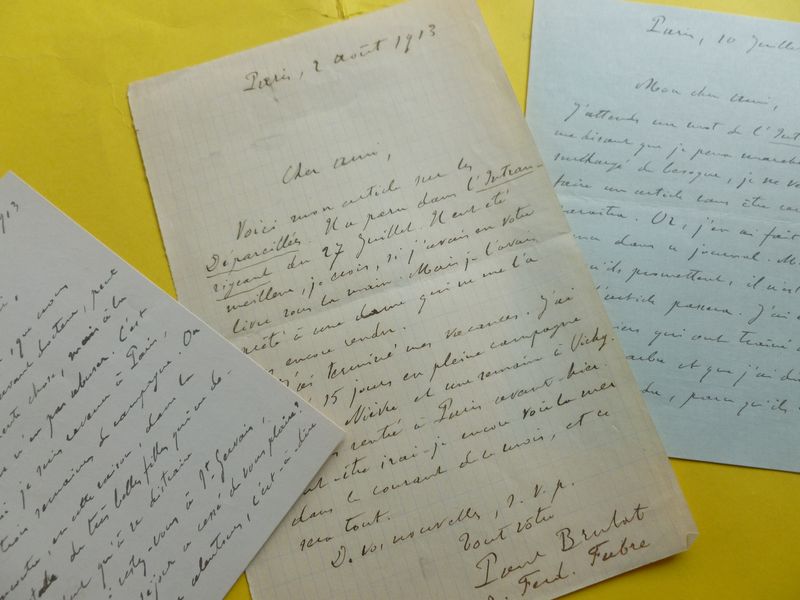 Paris, 2 août 1913
Cher ami,
Voici mon article sur les
Dépareillés. Il a paru dans l'Intran-
sigeant du 27 Juillet. Il eut été
meilleur, je crois, si j'avais eu votre
livre sous la main. Mais je l'avais
prêté à une dame qui ne me l'a
encore rendu.
terminé mes vacances. J'ai
15 jours en pleine campagne
Nièvre et une semaine à Vichy.
rentré à Paris avant-hier.
être irai-je encore voir la mer
dans le courant du mois, et ce
sera tout.
D. vos nouvelles, s. v. p.
Tout votre
Paul Brulat
Ferd. Fabre
Paris, 10 Juillet
Mon cher ami,
J'attends un mot de l'Int
me disant que je peux
surchargé de besogne, je ne
faire un article sans être
paraîtra. Or, j'en ai fait
dans un journal.
qu'ils promettent, il
l'article passera. J'ai
qui ont traîné
et que j'ai
parce qu'ils
1913
que nous
savant docteur, peut
chose, mais à la
n'en pas abuser. C'est
je suis revenu à Paris,
trois semaines de campagne. On
rencontre, en cette saison, dans la
de très belles filles qui ne de-
qu'à se distraire
-vous à St Gervais?
séjour a cessé de vous plaire?
alentours, c'est-à-dire